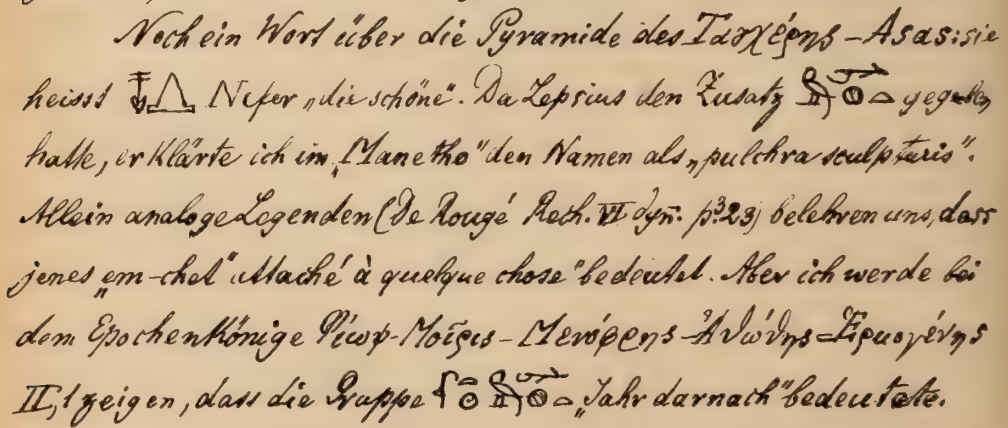 Noch ein Wort über die Pyramide des Τασχέρης – Asas: sie
heisst 𓄤𓉴 Nefer „die schöne“. Da Lepsius den Zusatz gegeben
hatte, erklärte ich im „Manetho“ den Namen als „pulchra sculpturis“.
Allein analoge Legenden (De Rougé Rech. VI dyn. p. 323) belehren uns, dass
jenes „em-chet“ attaché à quelque chose“ bedeutet. Aber ich werde bei
dem Epochenkönige Μοῖρις – Μενόφρης – Ἑρμογένης
II, 1 zeigen, dass die Gruppe „Jahr darnach“ bedeutete.